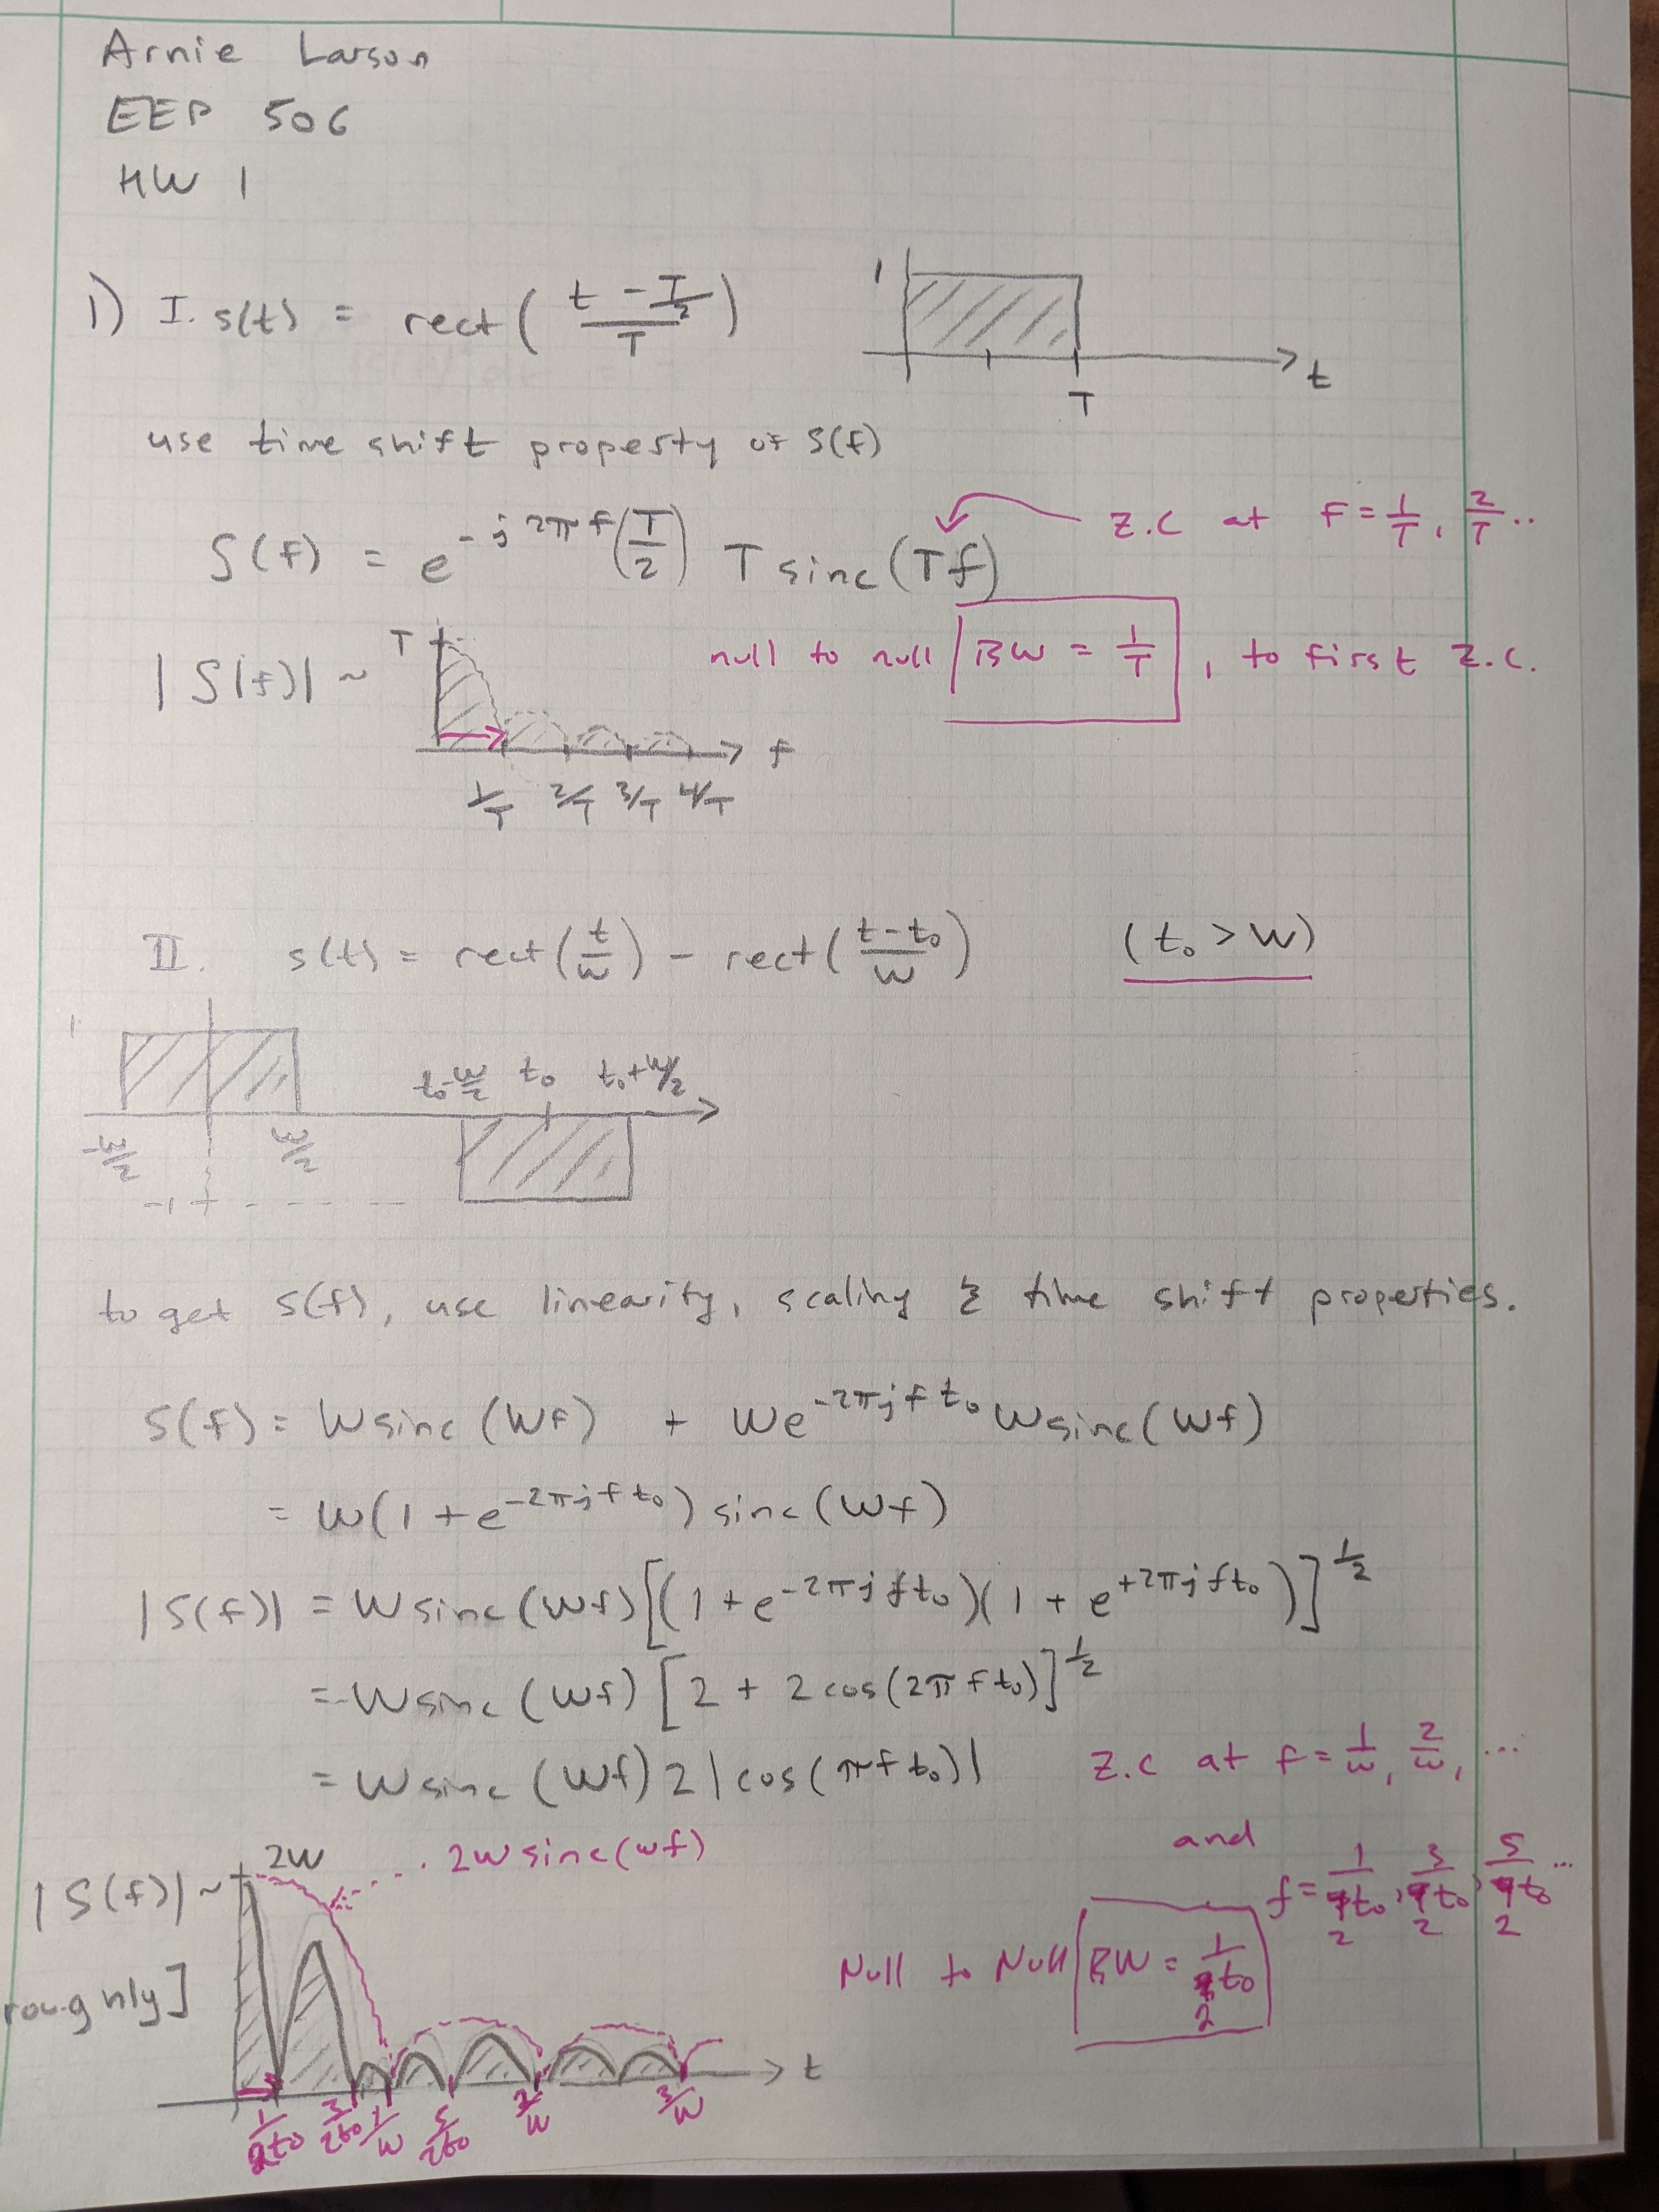 Arnie Larson
EEP 506
HW 1
1) I. s(t) = rect( (t - T/2)/T )
1
T
t
use time shift property of S(f)
S(f) = e^{-j2πf(T/2)} T sinc(Tf)
Z.C at f = 1/T, 2/T ..
|S(f)| ~
T
1/T 2/T 3/T 4/T
f
null to null BW = 1/T, to first Z.C.
II. s(t) = rect(t/w) - rect((t-t₀)/w) (t₀ > W)
1
t₀-w/2 t₀ t₀+w/2
-w/2 w/2
-1
to get S(f), use linearity, scaling & time shift properties.
S(f) = W sinc(Wf) + We^{-2πjft₀} W sinc(Wf)
= W(1 + e^{-2πjft₀}) sinc(Wf)
|S(f)| = W sinc(Wf)[(1 + e^{-2πjft₀})(1 + e^{+2πjft₀})]^{1/2}
= W sinc(Wf) [2 + 2cos(2πft₀)]^{1/2}
= W sinc(Wf) 2|cos(πft₀)|
Z.C at f = 1/w, 2/w, ...
and
f = 1/2t₀, 3/2t₀, 5/2t₀ ...
|S(f)| ~
2W
2W sinc(wf)
roughly]
1/2t₀ 3/2t₀ 1/w 5/2t₀ 2/w 3/w
t
Null to Null BW = 1/2t₀